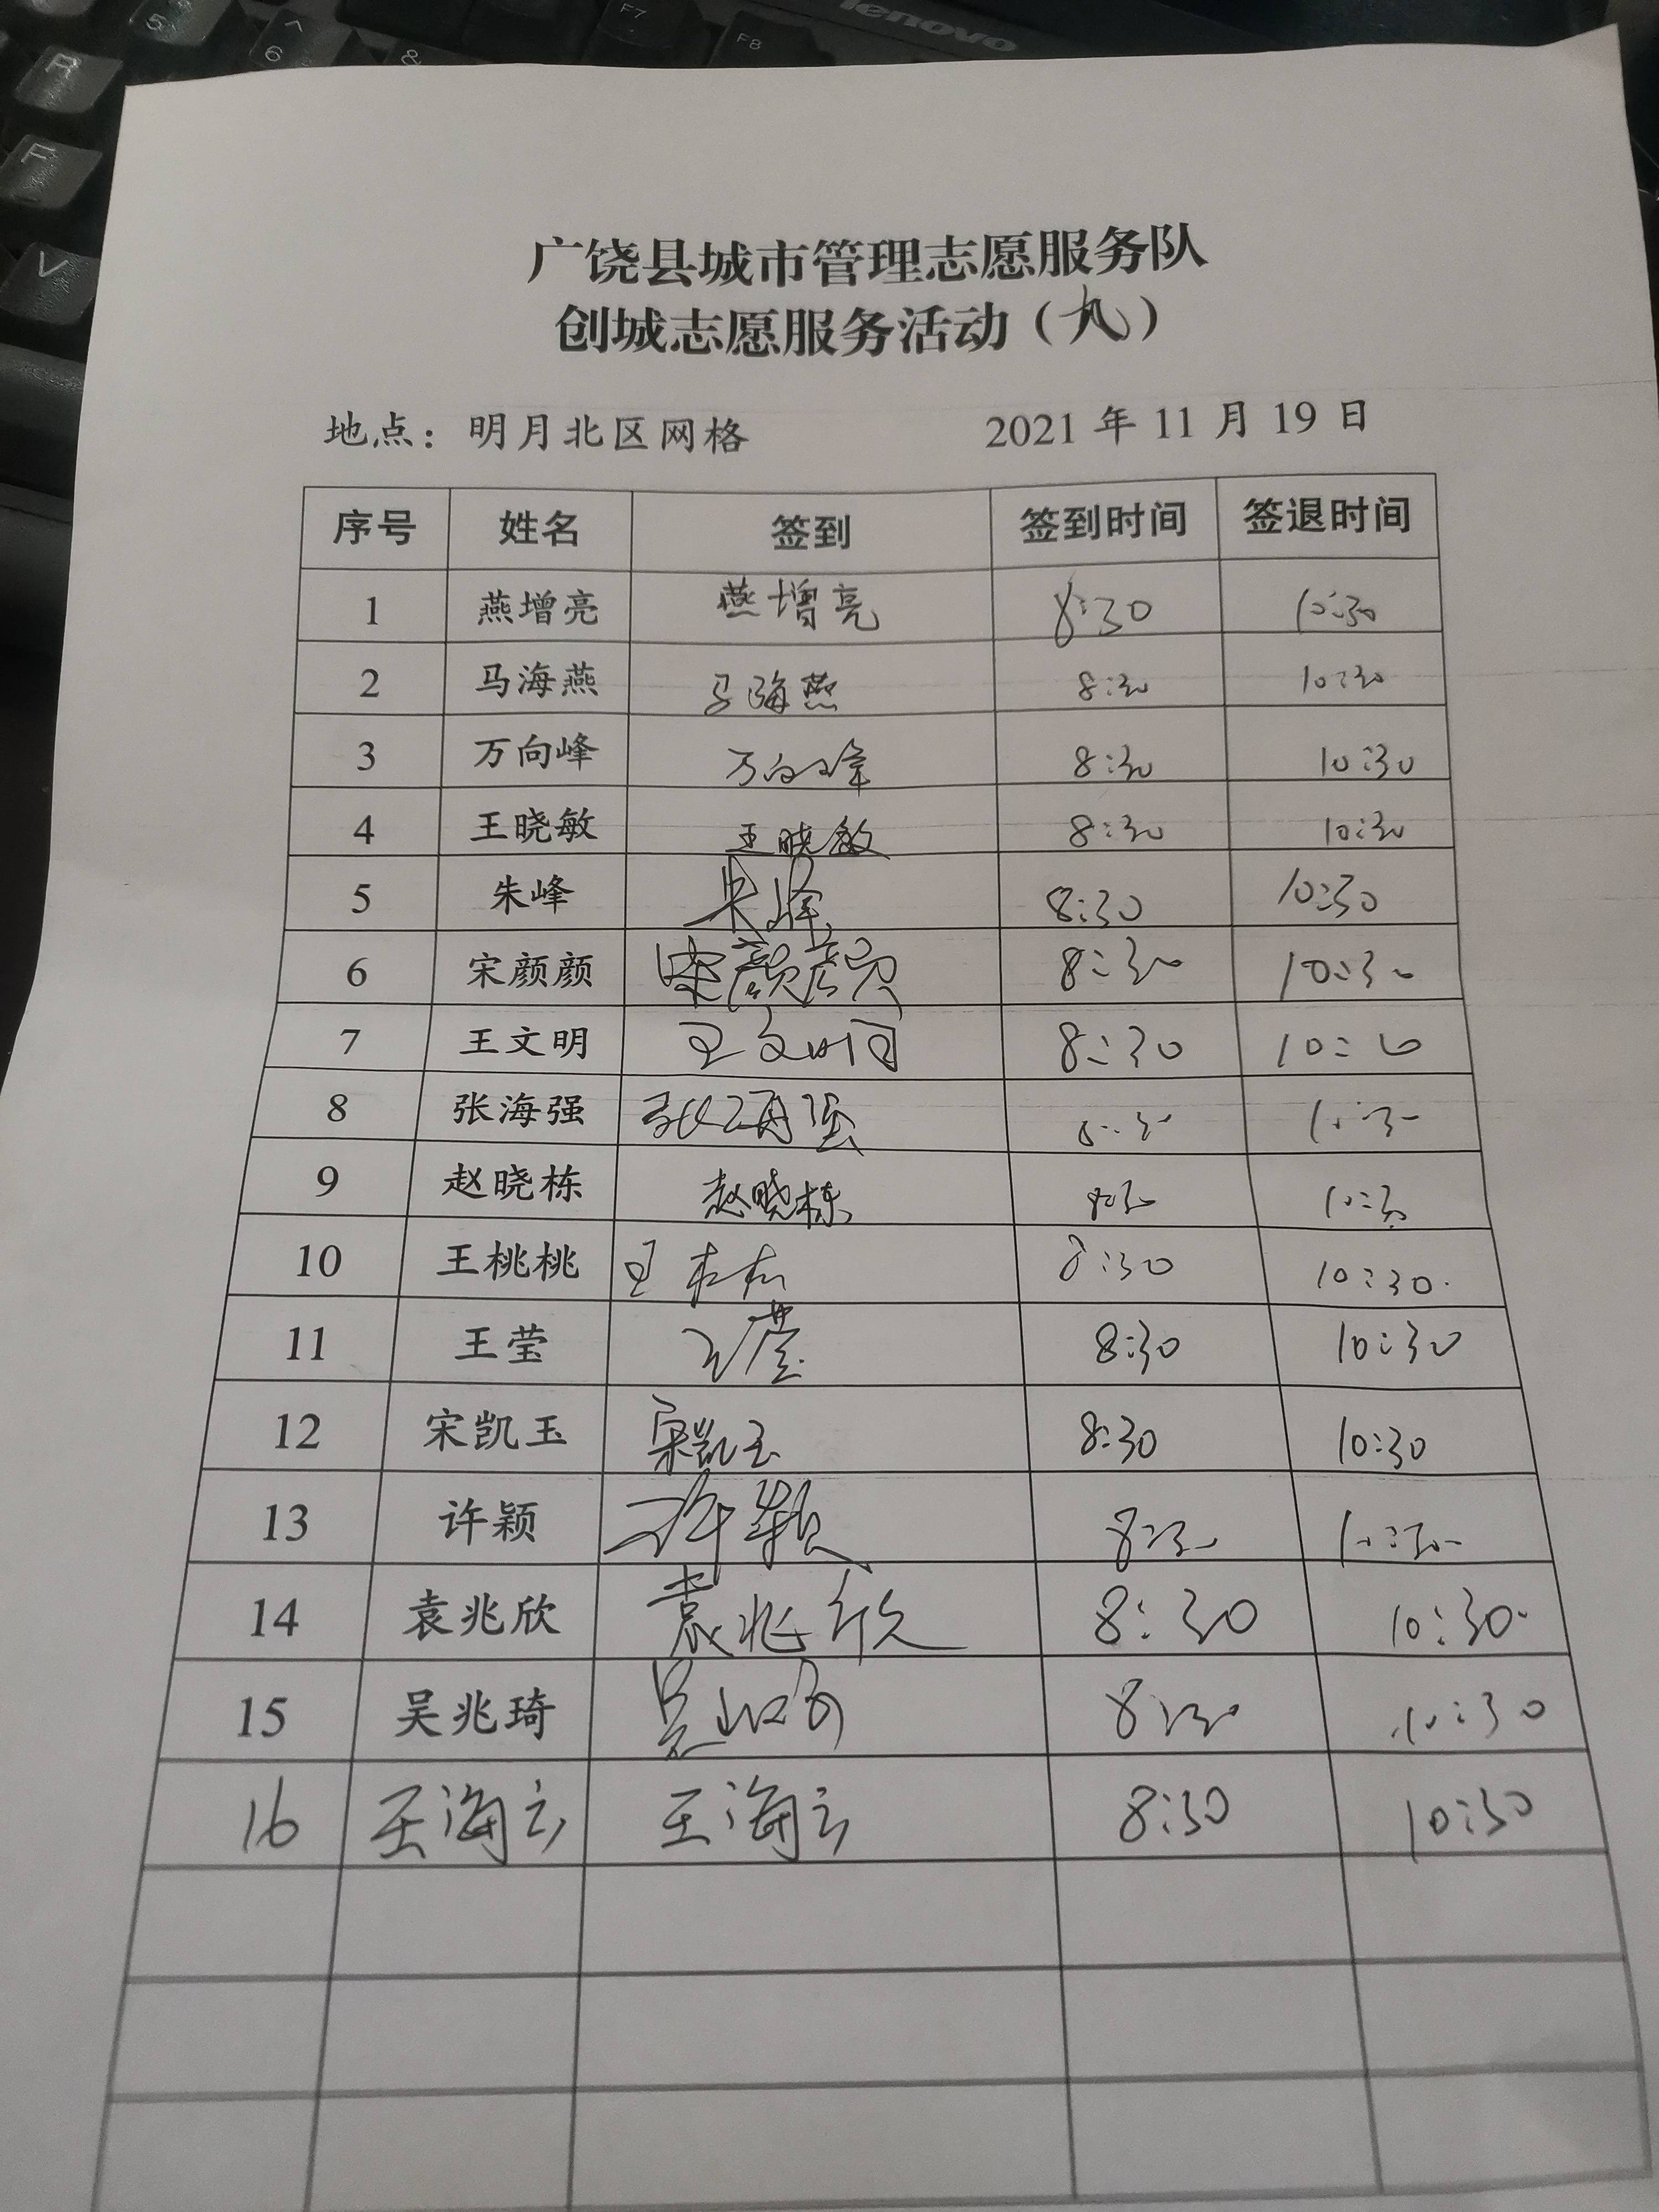 R
F
V
5
6
&
F7
F8
lenovo
广饶县城市管理志愿服务队
创城志愿服务活动（九）
地点：明月北区网格 2021 年 11 月 19 日
序号 姓名 签到 签到时间 签退时间
1 燕增亮 燕增亮 8:30 10:30
2 马海燕 马海燕 8:30 10:30
3 万向峰 万向峰 8:30 10:30
4 王晓敏 王晓敏 8:30 10:30
5 朱峰 朱峰 8:30 10:30
6 宋颜颜 宋颜颜 8:30 10:30
7 王文明 王文明 8:30
8 张海强 张海强
9 赵晓栋 赵晓栋 10:30
10 王桃桃 王桃桃 8:30 10:30
11 王莹 王莹 8:30 10:30
12 宋凯玉 宋凯玉 8:30 10:30
13 许颖 许颖 8:30 10:30
14 袁兆欣 袁兆欣 8:30 10:30
15 吴兆琦 吴兆琦 8:30 10:30
16 王海云 王海云 8:30 10:30